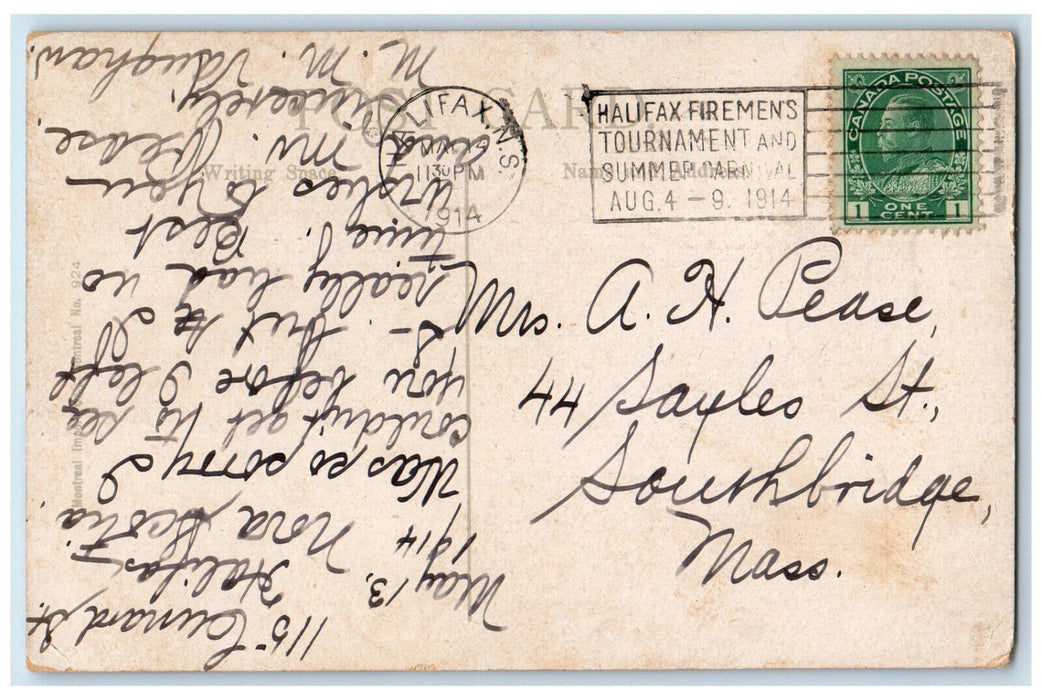 POST CARD
Writing Space
Name and Address
HALIFAX N.S.
11 30 PM
1914
HALIFAX FIREMEN'S
TOURNAMENT AND
SUMMER CARNIVAL
AUG. 4 – 9. 1914
CANADA POSTAGE
1 ONE CENT 1
Mrs. A. H. Pease,
44 Sayles St.,
Southbridge,
Mass.
115 Cunard St.
Halifax
Nova Scotia.
May 13,
1914
Was so sorry I
couldn't get to see
you before I left
but I
really had no
time. Best
wishes to you
and Mr. Pease.
Sincerely,
M. M. Vaughan.
Montreal Import Montreal No. 924